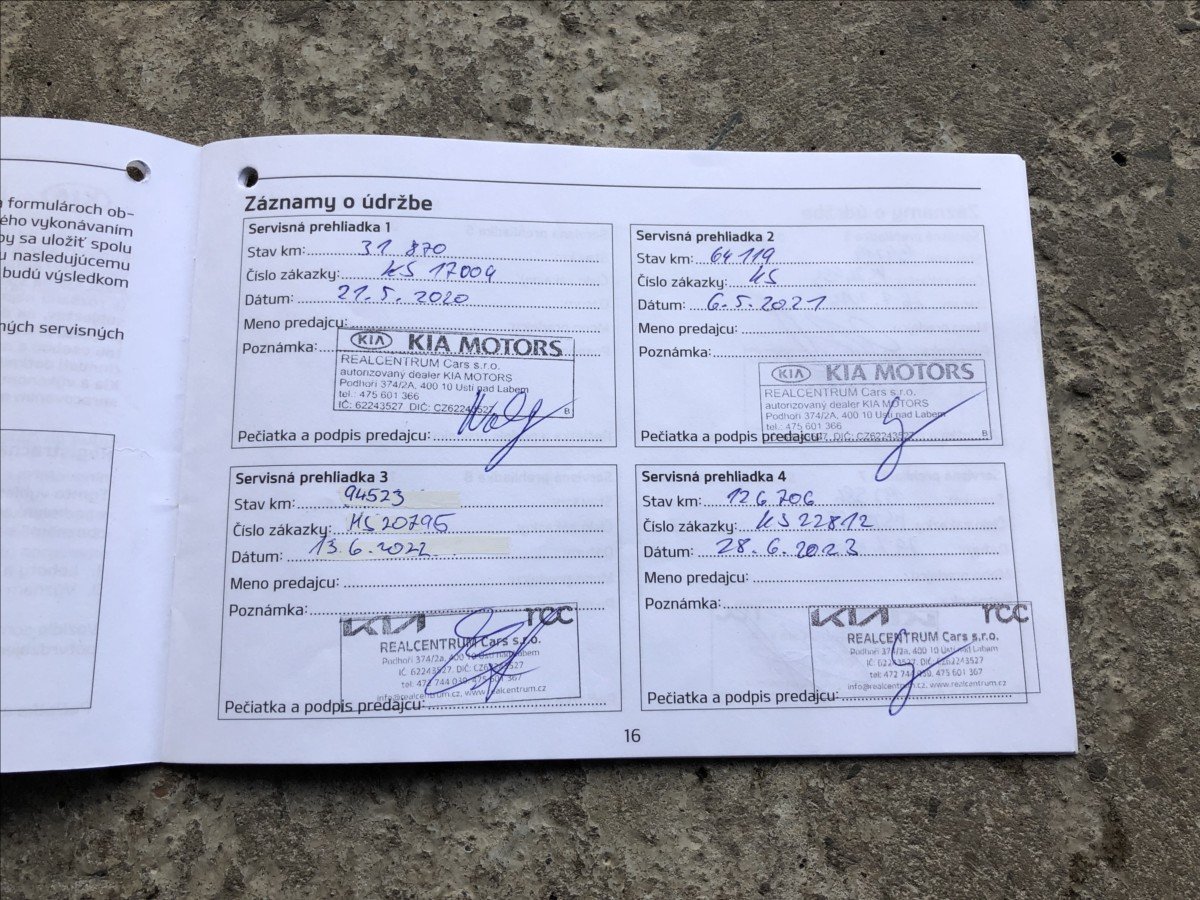 formulároch ob-
ého vykonávaním
by sa uložiť spolu
u nasledujúcemu
budú výsledkom
ných servisných
Záznamy o údržbe
Servisná prehliadka 1
Stav km: 31 870
Číslo zákazky: KS 17009
Dátum: 21.5.2020
Meno predajcu:
Poznámka:
KIA KIA MOTORS
REALCENTRUM Cars s.r.o.
autorizovaný dealer KIA MOTORS
Podhoří 374/2A, 400 10 Ústí nad Labem
tel.: 475 601 366
IČ: 62243527 DIČ: CZ62243527 B
Pečiatka a podpis predajcu:
Servisná prehliadka 2
Stav km: 64 119
Číslo zákazky: KS
Dátum: 6.5.2021
Meno predajcu:
Poznámka:
KIA KIA MOTORS
REALCENTRUM Cars s.r.o.
autorizovaný dealer KIA MOTORS
Podhoří 374/2A, 400 10 Ústí nad Labem
tel.: 475 601 366
DIČ: CZ62243527 B
Pečiatka a podpis predajcu:
Servisná prehliadka 3
Stav km: 94523
Číslo zákazky: KS20795
Dátum: 13.6.2022
Meno predajcu:
Poznámka:
KIA rcc
REALCENTRUM Cars s.r.o.
Podhoří 374/2a, 400 10 Ústí nad Labem
IČ: 62243527, DIČ: CZ62243527
tel: 472 744 039, 475 601 367
info@realcentrum.cz, www.realcentrum.cz
Pečiatka a podpis predajcu:
Servisná prehliadka 4
Stav km: 126 706
Číslo zákazky: KS22812
Dátum: 28.6.2023
Meno predajcu:
Poznámka:
KIA rcc
REALCENTRUM Cars s.r.o.
Podhoří 374/2a, 400 10 Ústí nad Labem
IČ: 62243527, DIČ: CZ62243527
tel: 472 744 039, 475 601 367
info@realcentrum.cz, www.realcentrum.cz
Pečiatka a podpis predajcu:
16